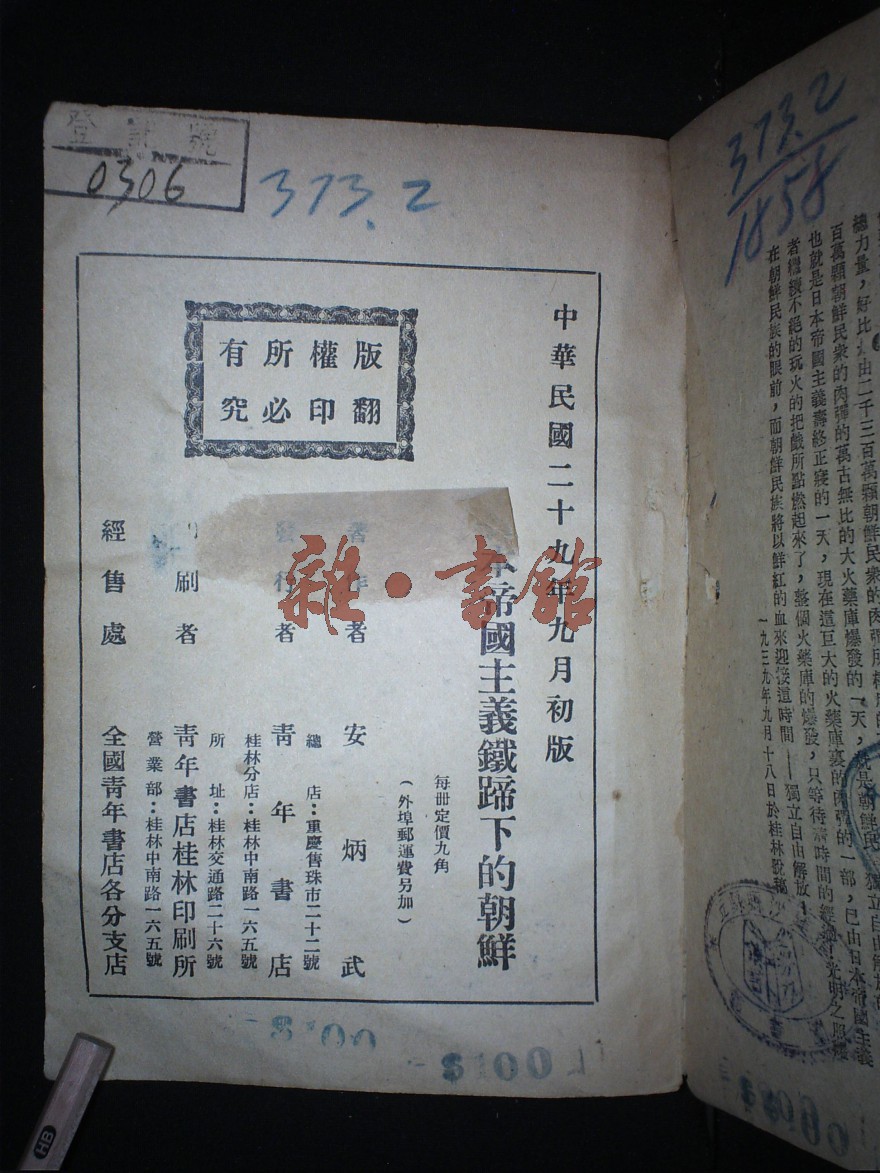 登記號
0306
373.2
373.2
1858
中華民國二十九年九月初版
帝國主義鐵蹄下的朝鮮
每冊定價九角
(外埠郵運費另加)
著作者 安炳武
發行者 青年書店
總店：重慶售珠市二十二號
桂林分店：桂林中南路一六五號
刷者 青年書店桂林印刷所
所址：桂林交通路二十六號
營業部：桂林中南路一六五號
經售處 全國青年書店各分支店
版權所有
翻印必究
雜·書館
總力量，好比
百萬顆朝鮮民衆的肉彈的萬古無比的大火藥庫爆發的一天，
也就是日本帝國主義壽終正寢的一天，現在這巨大的火藥庫裏的肉彈的一部，已由日本帝國主義
者繼續不絕的玩火的把戲所點燃起來了，整個火藥庫的爆發，只等待時間的
在朝鮮民族的眼前，而朝鮮民族將以鮮紅的血來迎接這時間——獨立自由解放！
一九三九年九月十八日於桂林脫稿
HB